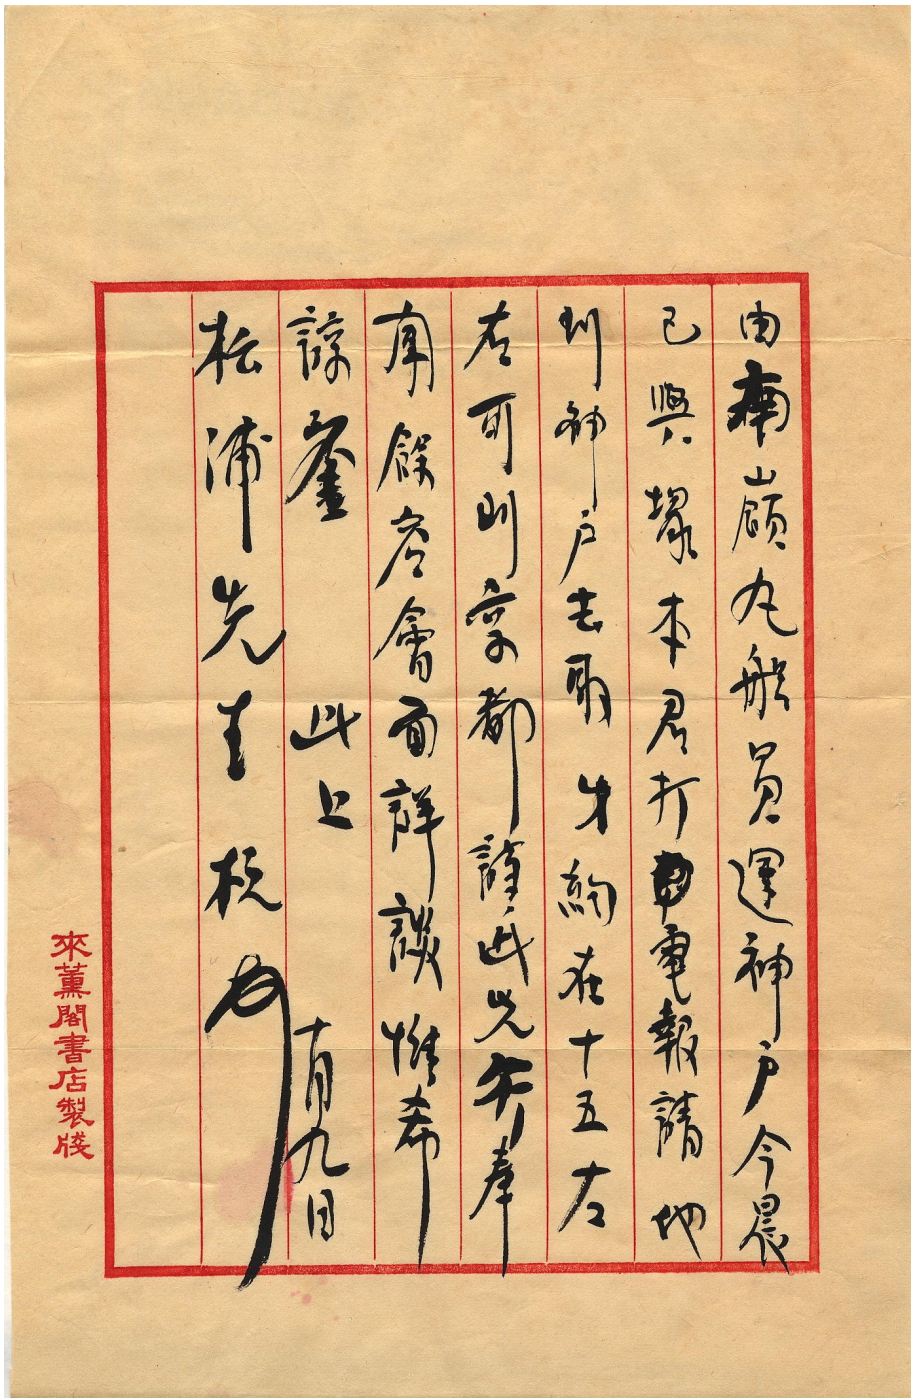 由南嶺丸船員運神户今晨
已與塚本君打電報請他
到神户去取件約在十五左
右可到京都謹此先奉
聞餘容會面詳談惟希
諒鑒 此上
松浦先生 杭
十月九日
來薰閣書店製牋